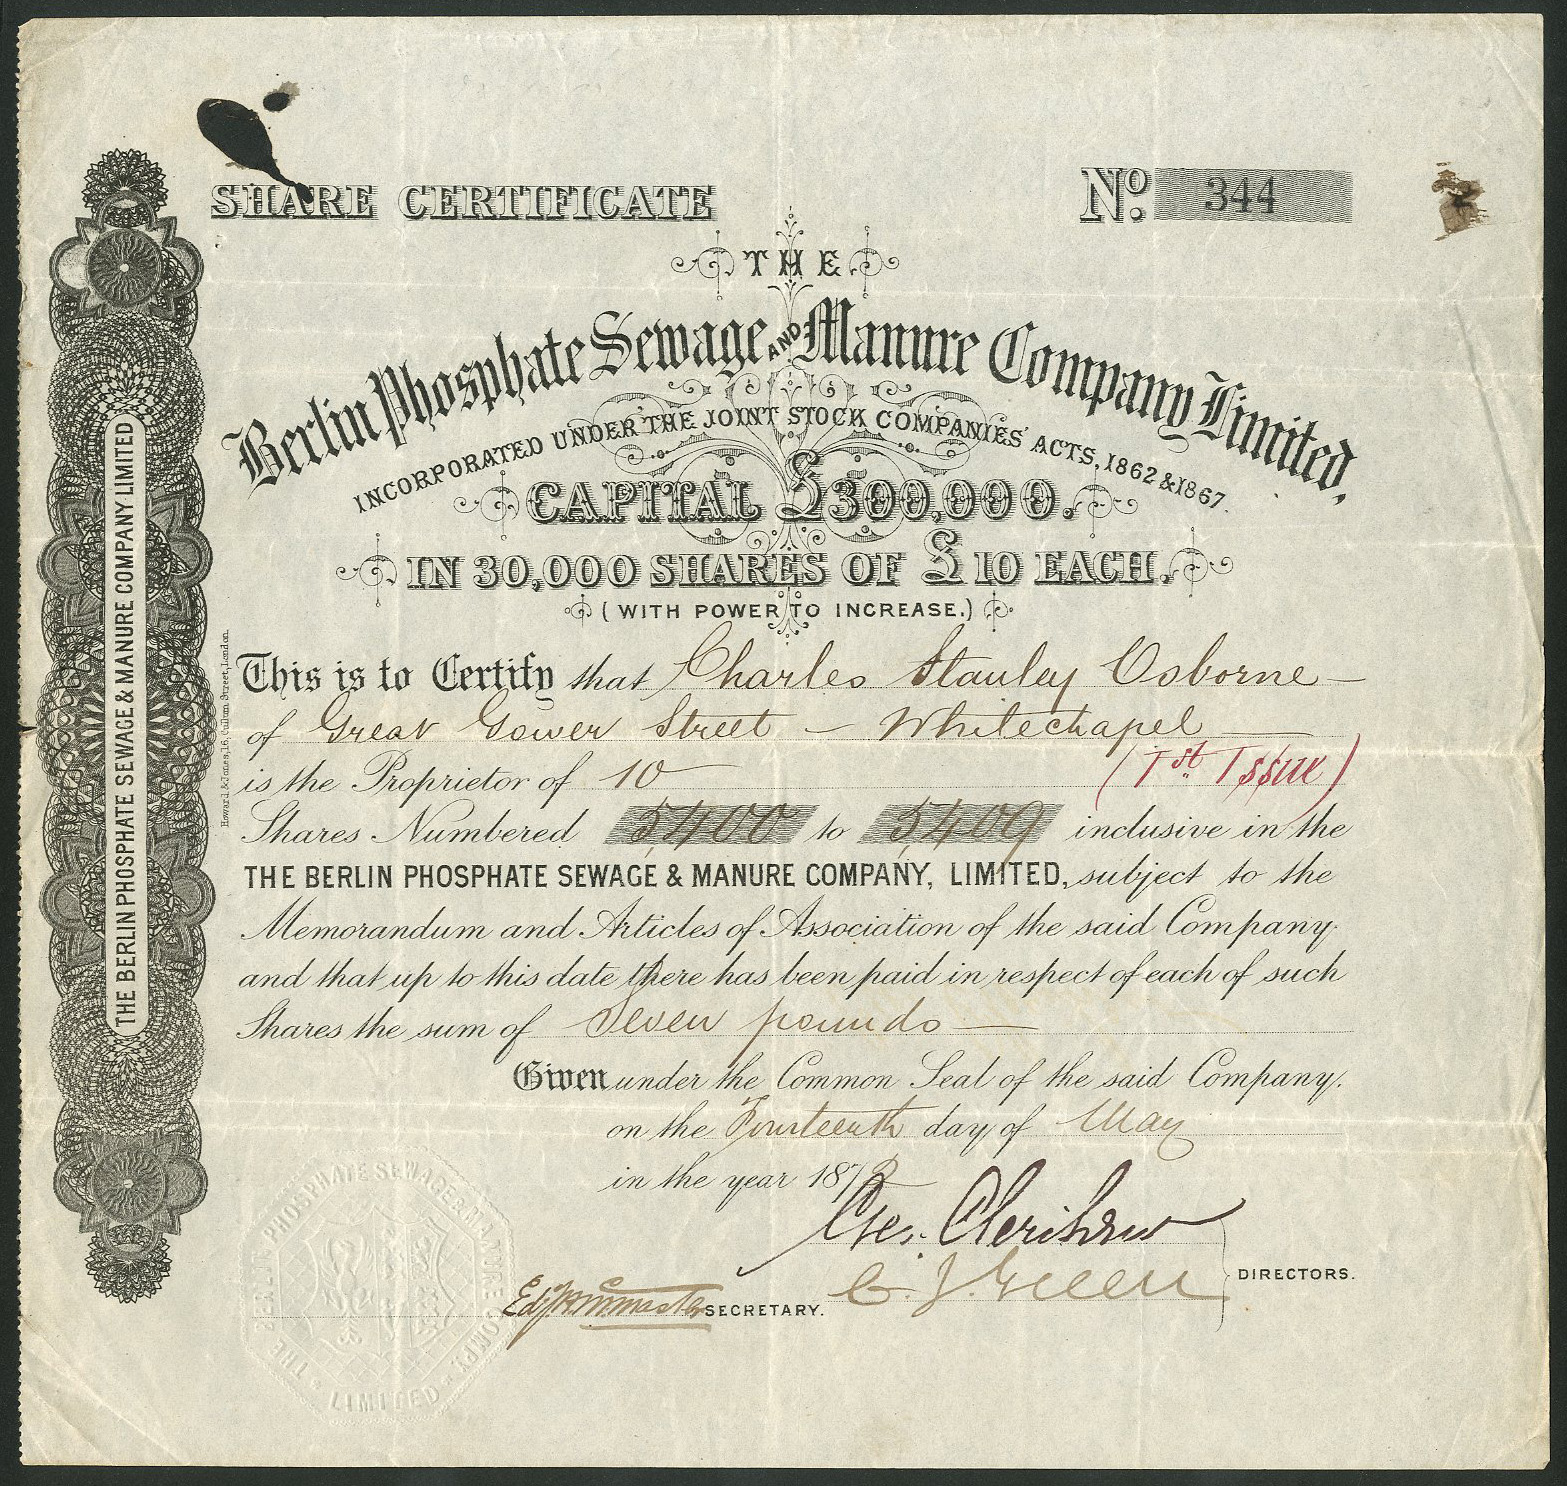 SHARE CERTIFICATE
No. 344
THE
Berlin Phosphate Sewage AND Manure Company Limited,
INCORPORATED UNDER THE JOINT STOCK COMPANIES' ACTS, 1862 & 1867.
CAPITAL £300,000.
IN 30,000 SHARES OF £10 EACH.
(WITH POWER TO INCREASE.)
This is to Certify that Charles Stanley Osborne
of Great Gower Street - Whitechapel
is the Proprietor of 10 (1st Issue)
Shares Numbered 5,400 to 5,409 inclusive in the
THE BERLIN PHOSPHATE SEWAGE & MANURE COMPANY, LIMITED, subject to the
Memorandum and Articles of Association of the said Company.
and that up to this date there has been paid in respect of each of such
Shares the sum of Seven pounds
Given under the Common Seal of the said Company.
on the Fourteenth day of May
in the year 187
Geo.
C. J. Green
DIRECTORS.
SECRETARY.
THE BERLIN PHOSPHATE SEWAGE & MANURE COMPANY LIMITED
Howard & Jones, 16, Cullum Street, London.
THE BERLIN PHOSPHATE SEWAGE & MANURE COMPY. LIMITED